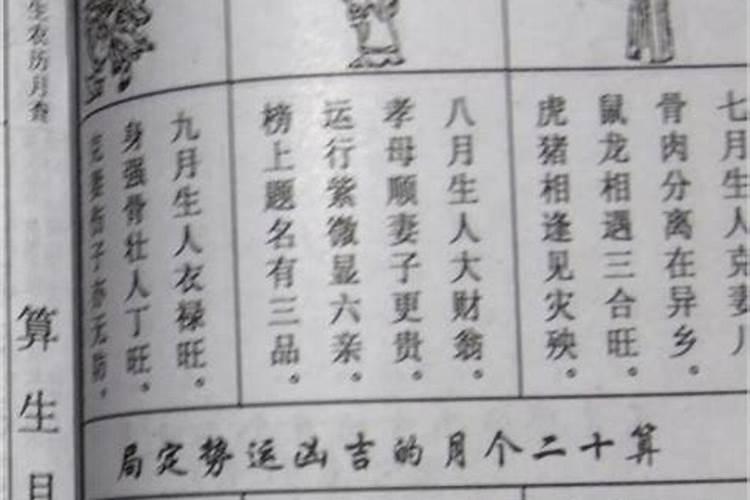 七月生人克妻
骨肉分离在异乡。
鼠龙相遇三合旺。
虎猪相逢见灾殃。
八月生人大财翁。
孝母顺妻子更贵。
运行紫微显六亲。
榜上题名有三品。
九月生人衣禄旺。
身强骨壮人丁旺。
克妻伤子亦无防。
算十二个月的吉凶运势定局
生农历月查
算生